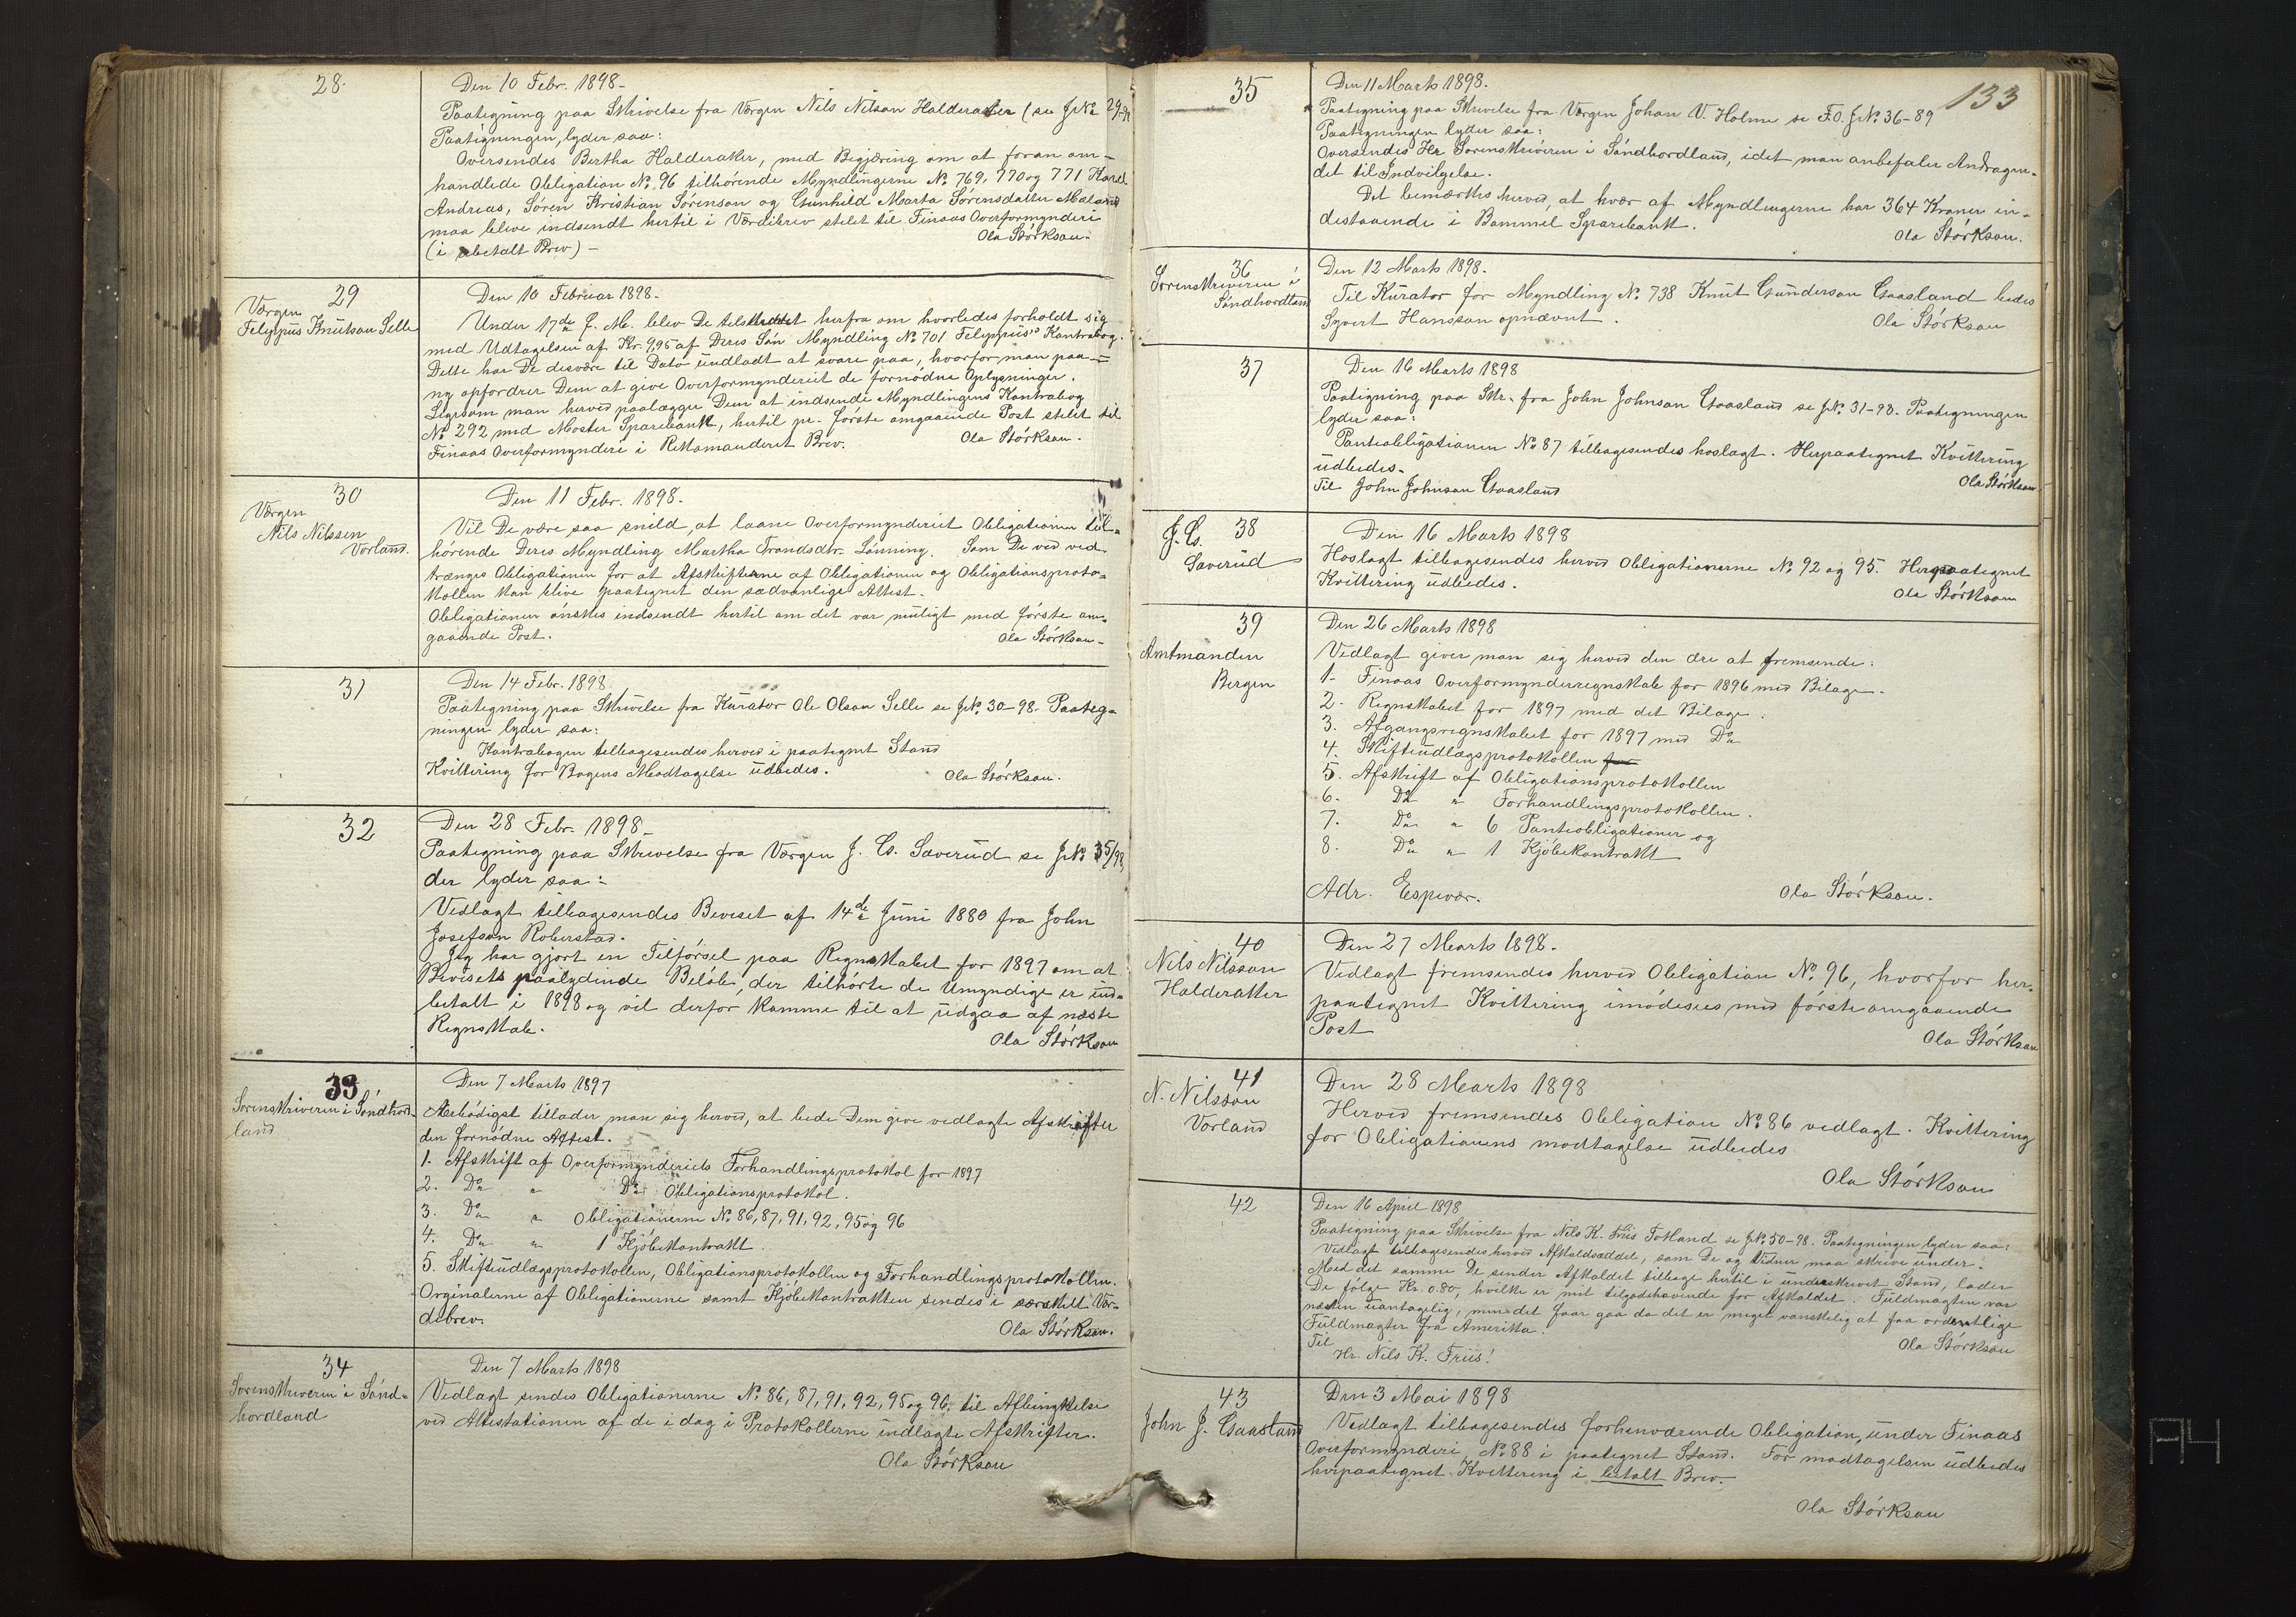 28.
Den 10 Febr. 1898.
Paategning paa Skrivelse fra Værgen Nils Nilson Halderaker (se JNo 29-98
Paategningen lyder saa:
Oversendes Bertha Halderaker, med Begjæring om at foran om-
handlede Obligation No 96 tilhørende Myndlingerne No 769, 770 og 771
Andreas, Søren Kristian Sørenson og Gunhild Marta Sørensdatter Maland
maa blive indsendt hertil i Værdibrev stilet til Finaas Overformynderi
(i ubetalt Brev) -
Ola Størkson.
29
Værgen
Felippus Knutson Selle
Den 10 Februar 1898.
Under 17de f. M. blev De tilskrevet herfra om hvorledes forholdt sig
med Udtagelsen af Kr. 9,95 af Deres Søn Myndling No 701 Felippus's Kontrabog.
Dette har De desværre til Dato undladt at svare paa, hvorfor man paa-
ny opfordrer Dem at give Overformynderiet de fornødne Oplysninger.
Ligesom man herved paalægger Dem at indsende Myndlingens Kontrabog
No 292 med Moster Sparebank, hertil pr. første omgaaende Post stilet til
Finaas Overformynderi i Rekomanderet Brev.
Ola Størkson.
30
Værgen
Nils Nilssen
Vorland.
Den 11 Febr. 1898.
Vil De være saa snild, at laane Overformynderiet Obligationen til-
hørende Deres Myndling Martha Trondsdtr. Lønning. Som De ved ved-
trænges Obligationen for at Afskrifterne af Obligationen og Obligationsproto-
kollen kan blive paategnet den sædvanlige Attest.
Obligationen ønskes indsendt hertil om det var muligt med første om-
gaaende Post.
Ola Størkson.
31
Den 14 Febr. 1898
Paategning paa Skrivelse fra Kurator Ole Olson Selle se JNo. 30-98. Paateg-
ningen lyder saa:
Kontrabogen tilbagesendes herved i paategnet Stand
Kvittering for Bogens Modtagelse udbedes.
Ola Størkson.
32
Den 28 Febr. 1898.
Paategning paa Skrivelse fra Værgen J. Cs. Saverud se JNo 35/98,
der lyder saa:
Vedlagt tilbagesendes Beviset af 14de Juni 1880 fra John
Josefson Roberstad.
Jeg har gjort en Tilførsel paa Regnskabet for 1897 om at
Bevisets paalydende Beløb, der tilhørte de Umyndige er ind-
betalt i 1898 og vil derfor komme til at udgaa af næste
Regnskab.
Ola Størkson
33
Sorenskriveren i Søndhord-
land
Den 7 Marts 1897
Ærbødigst tillader man sig herved, at bede Dem give vedlagte Afskrifter
den fornødne Attest.
1. Afskrift af Overformynderiets Forhandlingsprotokol for 1897
2. Do " Do Obligationsprotokol.
3. Do " Obligationerne No. 86, 87, 91, 92, 95 og 96
4. Do " 1 Kjøbekontrakt.
5. Skifteudlægsprotokollen, Obligationsprotokollen og Forhandlingsprotokollen.
Orginalerne af Obligationerne samt Kjøbekontrakten sendes i særskilt Vær-
dibrev.
Ola Størkson.
34
Sorenskriveren i Sønd-
hordland
Den 7 Marts 1898
Vedlagt sendes Obligationerne No. 86, 87, 91, 92, 95 og 96, til Afbenyttelse
ved Attestationen af de i dag i Protokollerne indlagte Afskrifter.
Ola Størkson
133
35
Den 11 Marts 1898.
Paategning paa Skrivelse fra Værgen Johan V. Holme se F.O. JNo. 36-89
Paategningen lyder saa:
Oversendes Hr Sorenskriveren i Søndhordland, idet man anbefaler Andragen-
det til Indvilgelse.
Det bemærkes herved, at hver af Myndlingerne har 364 Kroner in-
destaaende i Bømmel Sparebank.
Ola Størkson.
36
Sorenskriveren i
Søndhordland
Den 12 Marts 1898.
Til Kurator for Myndling No. 738 Knut Gunderson Gaasland bedes
Syvert Hansson opnævnt.
Ola Størkson
37
Den 16 Marts 1898
Paategning paa Skr. fra John Johnson Gaasland se JNo. 31-98. Paategningen
lyder saa:
Panteobligationen No. 87 tilbagesendes hoslagt. Herpaategnet Kvittering
udbedes.
Til John Johnson Gaasland
Ola Størkson
38
J. Cs.
Saverud
Den 16 Marts 1898
Hoslagt tilbagesendes herved Obligationerne No. 92 og 95. Herpaategnet
Kvittering udbedes.
Ola Størkson
39
Amtmanden
Bergen
Den 26 Marts 1898
Vedlagt giver man sig herved den ære at fremsende:
1. Finaas Overformynderregnskab for 1896 med Bilage.
2. Regnskabet for 1897 med det Bilage.
3. Afgangsregnskabet for 1897 med Do
4. Skifteudlægsprotokollen for
5. Afskrift af Obligationsprotokollen
6. Do " Forhandlingsprotokollen.
7. Do " 6 Panteobligationer og
8. Do " 1 Kjøbekontrakt
Adr. Espevær.
Ola Størkson.
40
Nils Nilsson
Halderaker
Den 27 Marts 1898.
Vedlagt fremsendes herved Obligation No. 96, hvorfor her-
paategnet Kvittering imødesees med første omgaaende
Post
Ola Størkson
41
N. Nilsson
Vorland
Den 28 Marts 1898
Herved fremsendes Obligation No 86 vedlagt. Kvittering
for Obligationens modtagelse udbedes
Ola Størkson
42
Den 16 April 1898
Paategning paa Skrivelse fra Nils K. Friis Fotland se JNo. 50-98. Paategningen lyder saa:
Vedlagt tilbagesendes herved Afkaldsseddel, som De og Vidner maa skrive under.
Med det samme De sender Afkaldet tilbage hertil i underskrevet Stand, lader
De følge Kr. 0.80, hvilke er mit tilgodehavende for Afkaldet. Fuldmagten var
næsten uantagelig, men det faar gaa da det er meget vanskelig at faa ordentlige
Fuldmagter fra Amerika.
Til
Hr. Nils K. Friis!
Ola Størkson
43
John J. Gaasland
Den 3 Mai 1898
Vedlagt tilbagesendes forhenværende Obligation, under Finaas
Overformynderi, No. 88 i paategnet Stand. For modtagelsen udbedes
herpaategnet Kvittering i betalt Brev.
Ola Størkson
A4